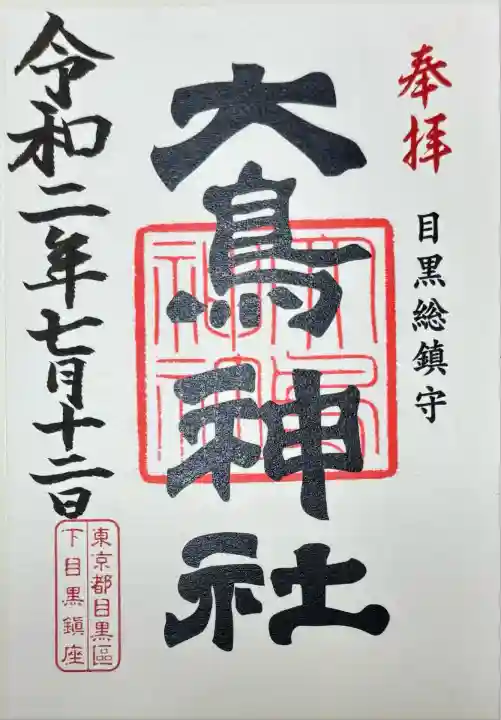 奉拝
目黒総鎮守
大鳥神社
大鳥神社
令和二年七月十二日
東京都目黒區
下目黒鎮座